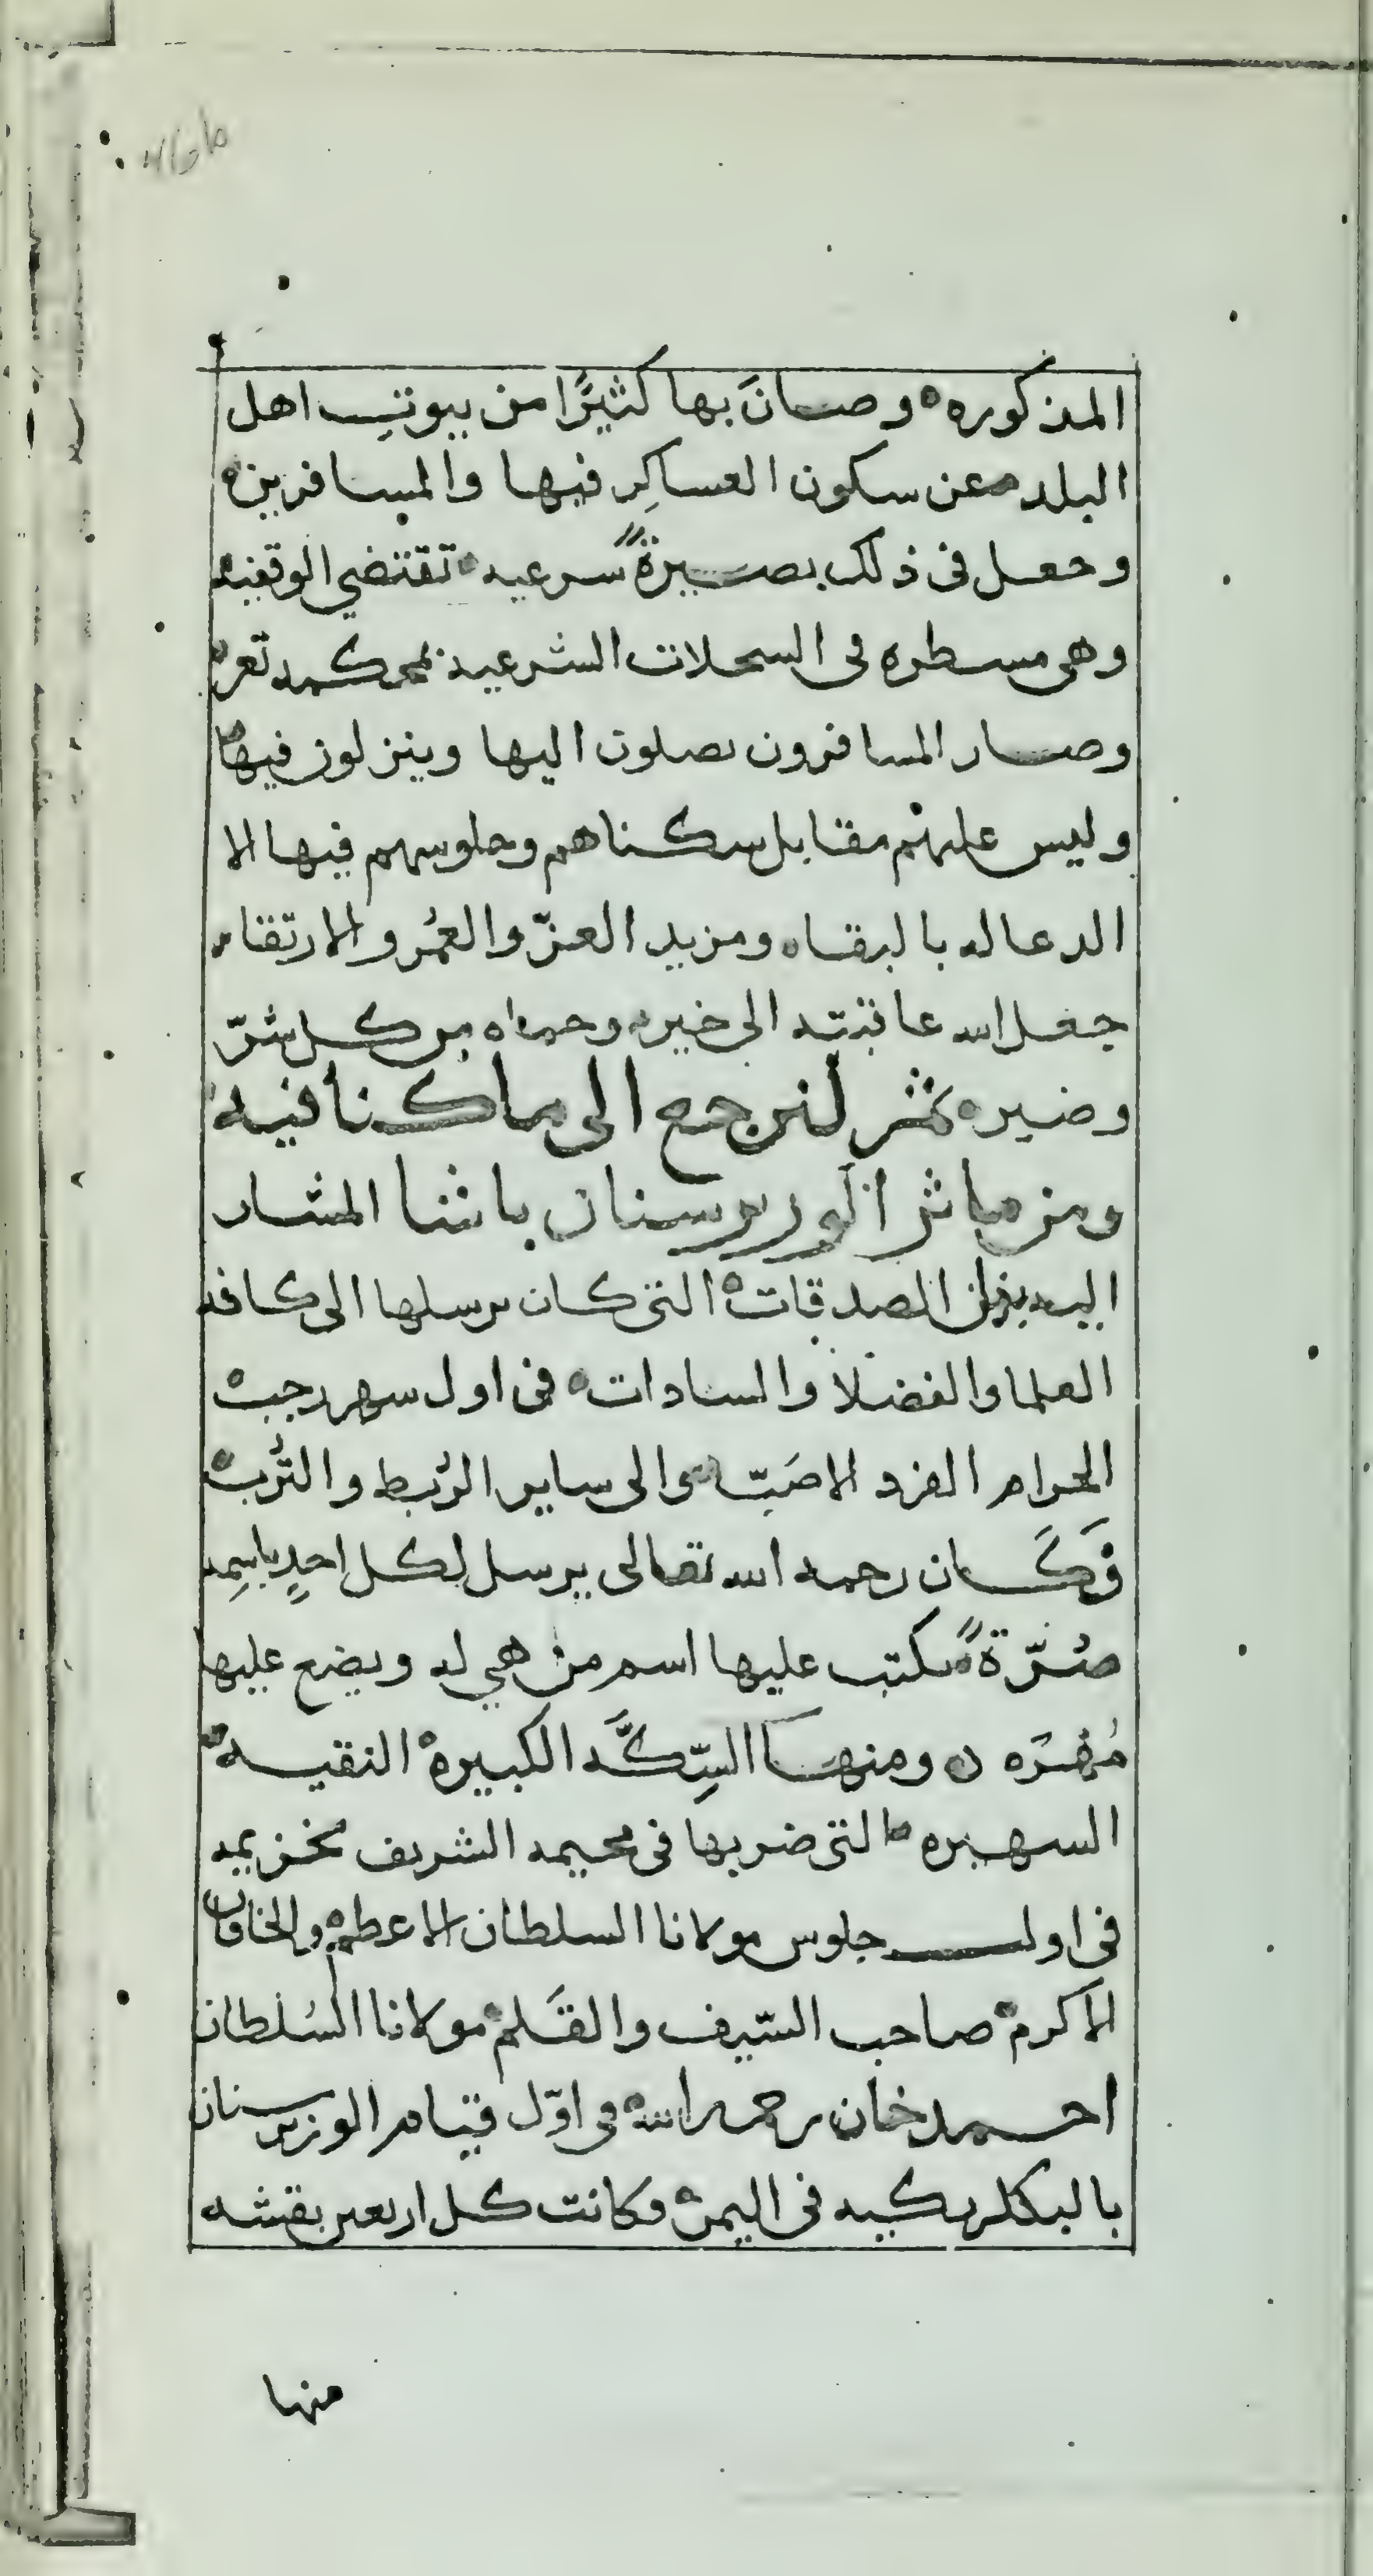 المذكوره وصانَ بها كثيرًا من بيوتِ اهل
البلده عن سكون العساكِر فيها والمسافرين
وجعل فى ذلك بصيرةً شرعيه تقتضي الوقفيه
وهى مسطره فى السجلات الشرعيه بمحكمه تعز
وصار المسافرون يصلون اليها وينزلون فيها
وليس عليهم مقابل سكناهم وجلوسهم فيها الا
الدعا له بالبقاء ومزيد العزّ والعُمر والارتقاء
جعل الله عاقبته الى خير وحماه من كل شرّ
وضير ثم لنرجع الى ما كنا فيه
ومن مآثر الوزير سنان باشا المشار
اليه بذل الصدقات التى كان يرسلها الى كافه
العلما والفضلا والسادات فى اول شهر رجب
الحرام الفرد الاصَبّ والى ساير الرُبط والتُرب
فَكَان رحمه الله تعالى يرسل لكل احدٍ باسِمه
صُرّةً يكتب عليها اسم من هي له ويضع عليها
مُهرَه ومنها السِّكَّه الكبيرة النقيه
الشهيره التى ضربها فى مخيمه الشريف بخزيمه
فى اول جلوس مولانا السلطان الاعظم والخاقان
الاكرم صاحب السّيف والقَلم مولانا السُلطان
احمد خان رحمه الله فى اوّل قيام الوزير سنان
بالبكلربكيه فى اليمن وكانت كل اربعين بقشه
منها